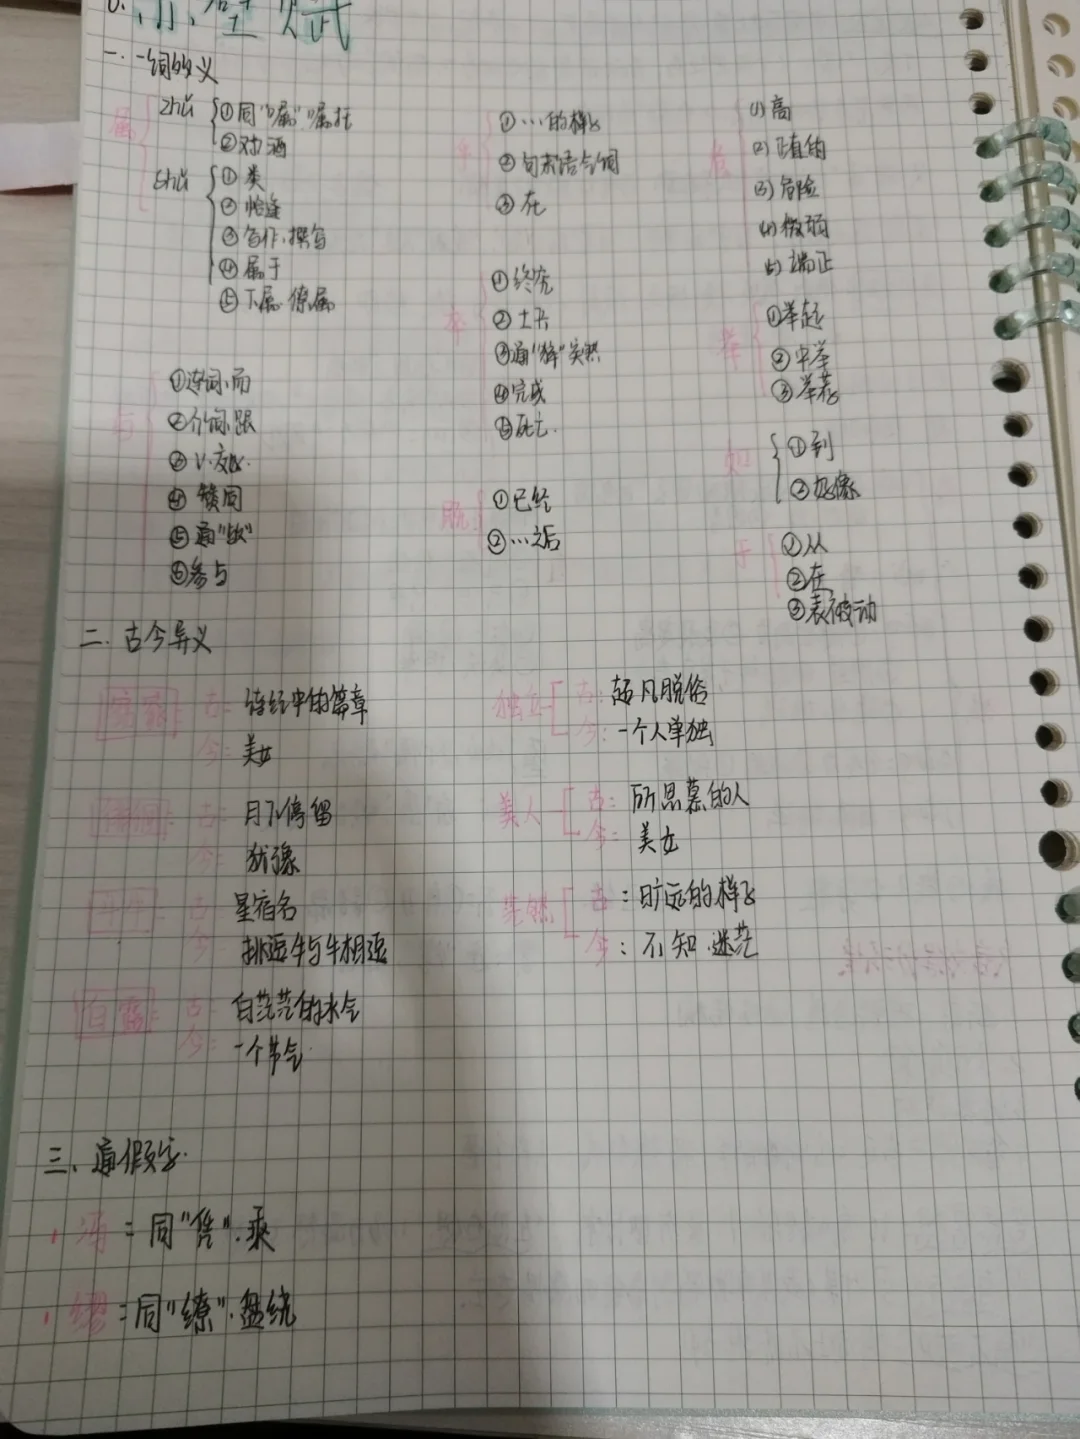 赤壁赋
一.一词多义
属
zhǔ ①同"嘱"嘱托
②劝酒
shǔ ①类
②恰逢
③写作、撰写
④属于
⑤下属.僚属
与
①连词,而
②介词,跟
③V.
④赞同
⑤通"欤"
⑥参与
①…的样子
②句末语气词
③在
卒
①终究
②士兵
③通"猝"突然
④完成
⑤死亡.
既
①已经
②…之后
危
(1)高
(2)正直的
(3)危险
(4)微弱
(5)端正
举
①举起
②中举
③举荐
如
①到
②好像
于
①从
②在
③表被动
二.古今异义
窈窕: 古: 诗经中的篇章
今: 美女
徘徊: 古: 月下停留
今: 犹豫
斗牛: 古: 星宿名
今: 挑逗牛与牛相逗
白露: 古: 白茫茫的水气
今: 一个节气.
独立 古: 超凡脱俗
今: 一个人单独
美人 古: 所思慕的人
今: 美女
茫然 古: 旷远的样子
今: 不知.迷茫
三、通假字.
冯: 同"凭".乘
缪: 同"缭".盘绕